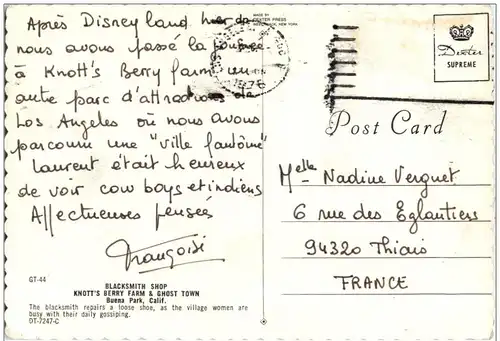 Après Disneyland hier
nous avons passé la journée
à Knott's Berry farm un
autre parc d'attractions de
Los Angeles où nous avons
parcouru une "ville fantôme"
Laurent était heureux
de voir cow boys et indiens
Affectueuses pensées
Françoise
MADE BY
DEXTER PRESS
WEST NYACK, NEW YORK
Dexter
SUPREME
Post Card
Melle Nadine Verguet
6 rue des Eglantiers
94320 Thiais
FRANCE
GT-44
BLACKSMITH SHOP
KNOTT'S BERRY FARM & GHOST TOWN
Buena Park, Calif.
The blacksmith repairs a loose shoe, as the village women are
busy with their daily gossiping.
DT-7247-C